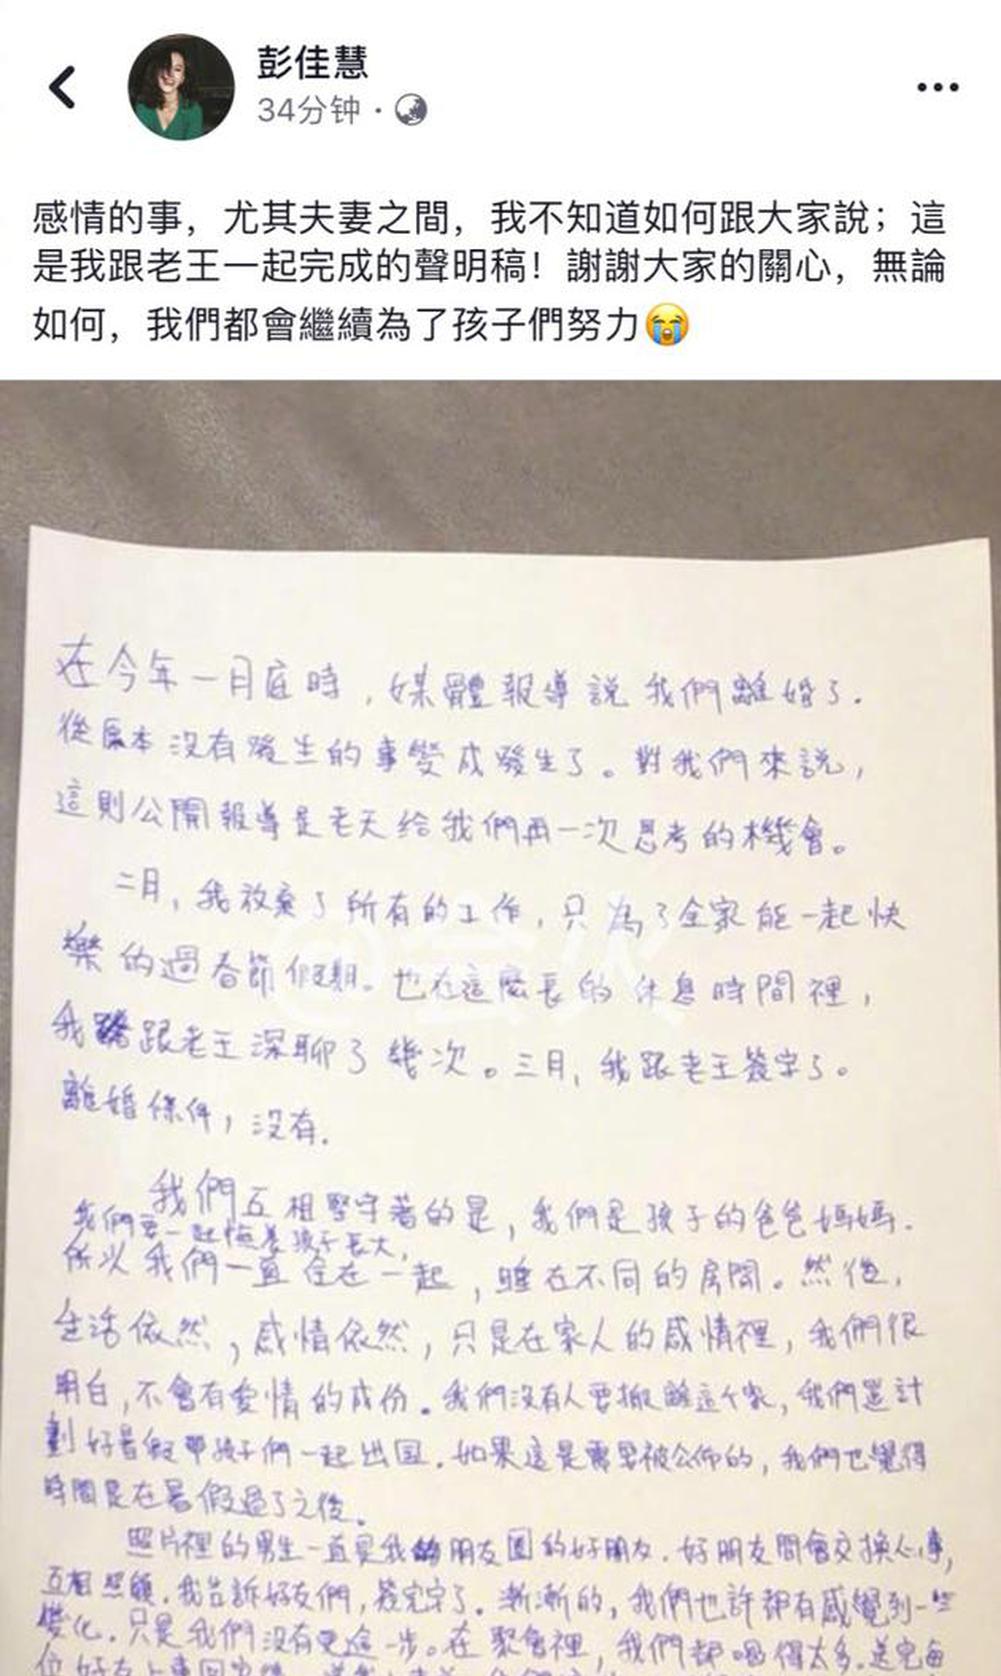 彭佳慧
34分钟 ·
感情的事，尤其夫妻之間，我不知道如何跟大家說；這
是我跟老王一起完成的聲明稿！謝謝大家的關心，無論
如何，我們都會繼續為了孩子們努力😭
在今年一月底時，媒體報導說我們離婚了.
從原本沒有發生的事變成發生了。對我們來說，
這則公開報導是老天給我們再一次思考的機會。
二月，我放棄了所有的工作，只為了全家能一起快
樂的過春節假期。也在這麼長的休息時間裡，
我跟老王深聊了幾次。三月，我跟老王簽字了。
離婚條件，沒有.
我們互相堅守著的是，我們是孩子的爸爸媽媽.
我們要一起陪養孩子長大，
所以我們一直住在一起，睡在不同的房間。然後，
生活依然，感情依然，只是在家人的感情裡，我們很
明白，不會有愛情的成份。我們沒有人要搬離這个家，我們是計
劃好暑假帶孩子們一起出国.如果這是需要被公佈的，我們也覺得
時間是在暑假過了之後.
照片裡的男生一直是我朋友圈的好朋友.好朋友間會交換心事，
互相照顧.我告訴好友們，簽完字了.漸漸的，我們也許都有感覺到一些
變化.只是我們沒有更進一步。在聚會裡，我們都喝得太多.送完每
位好友上車回家後